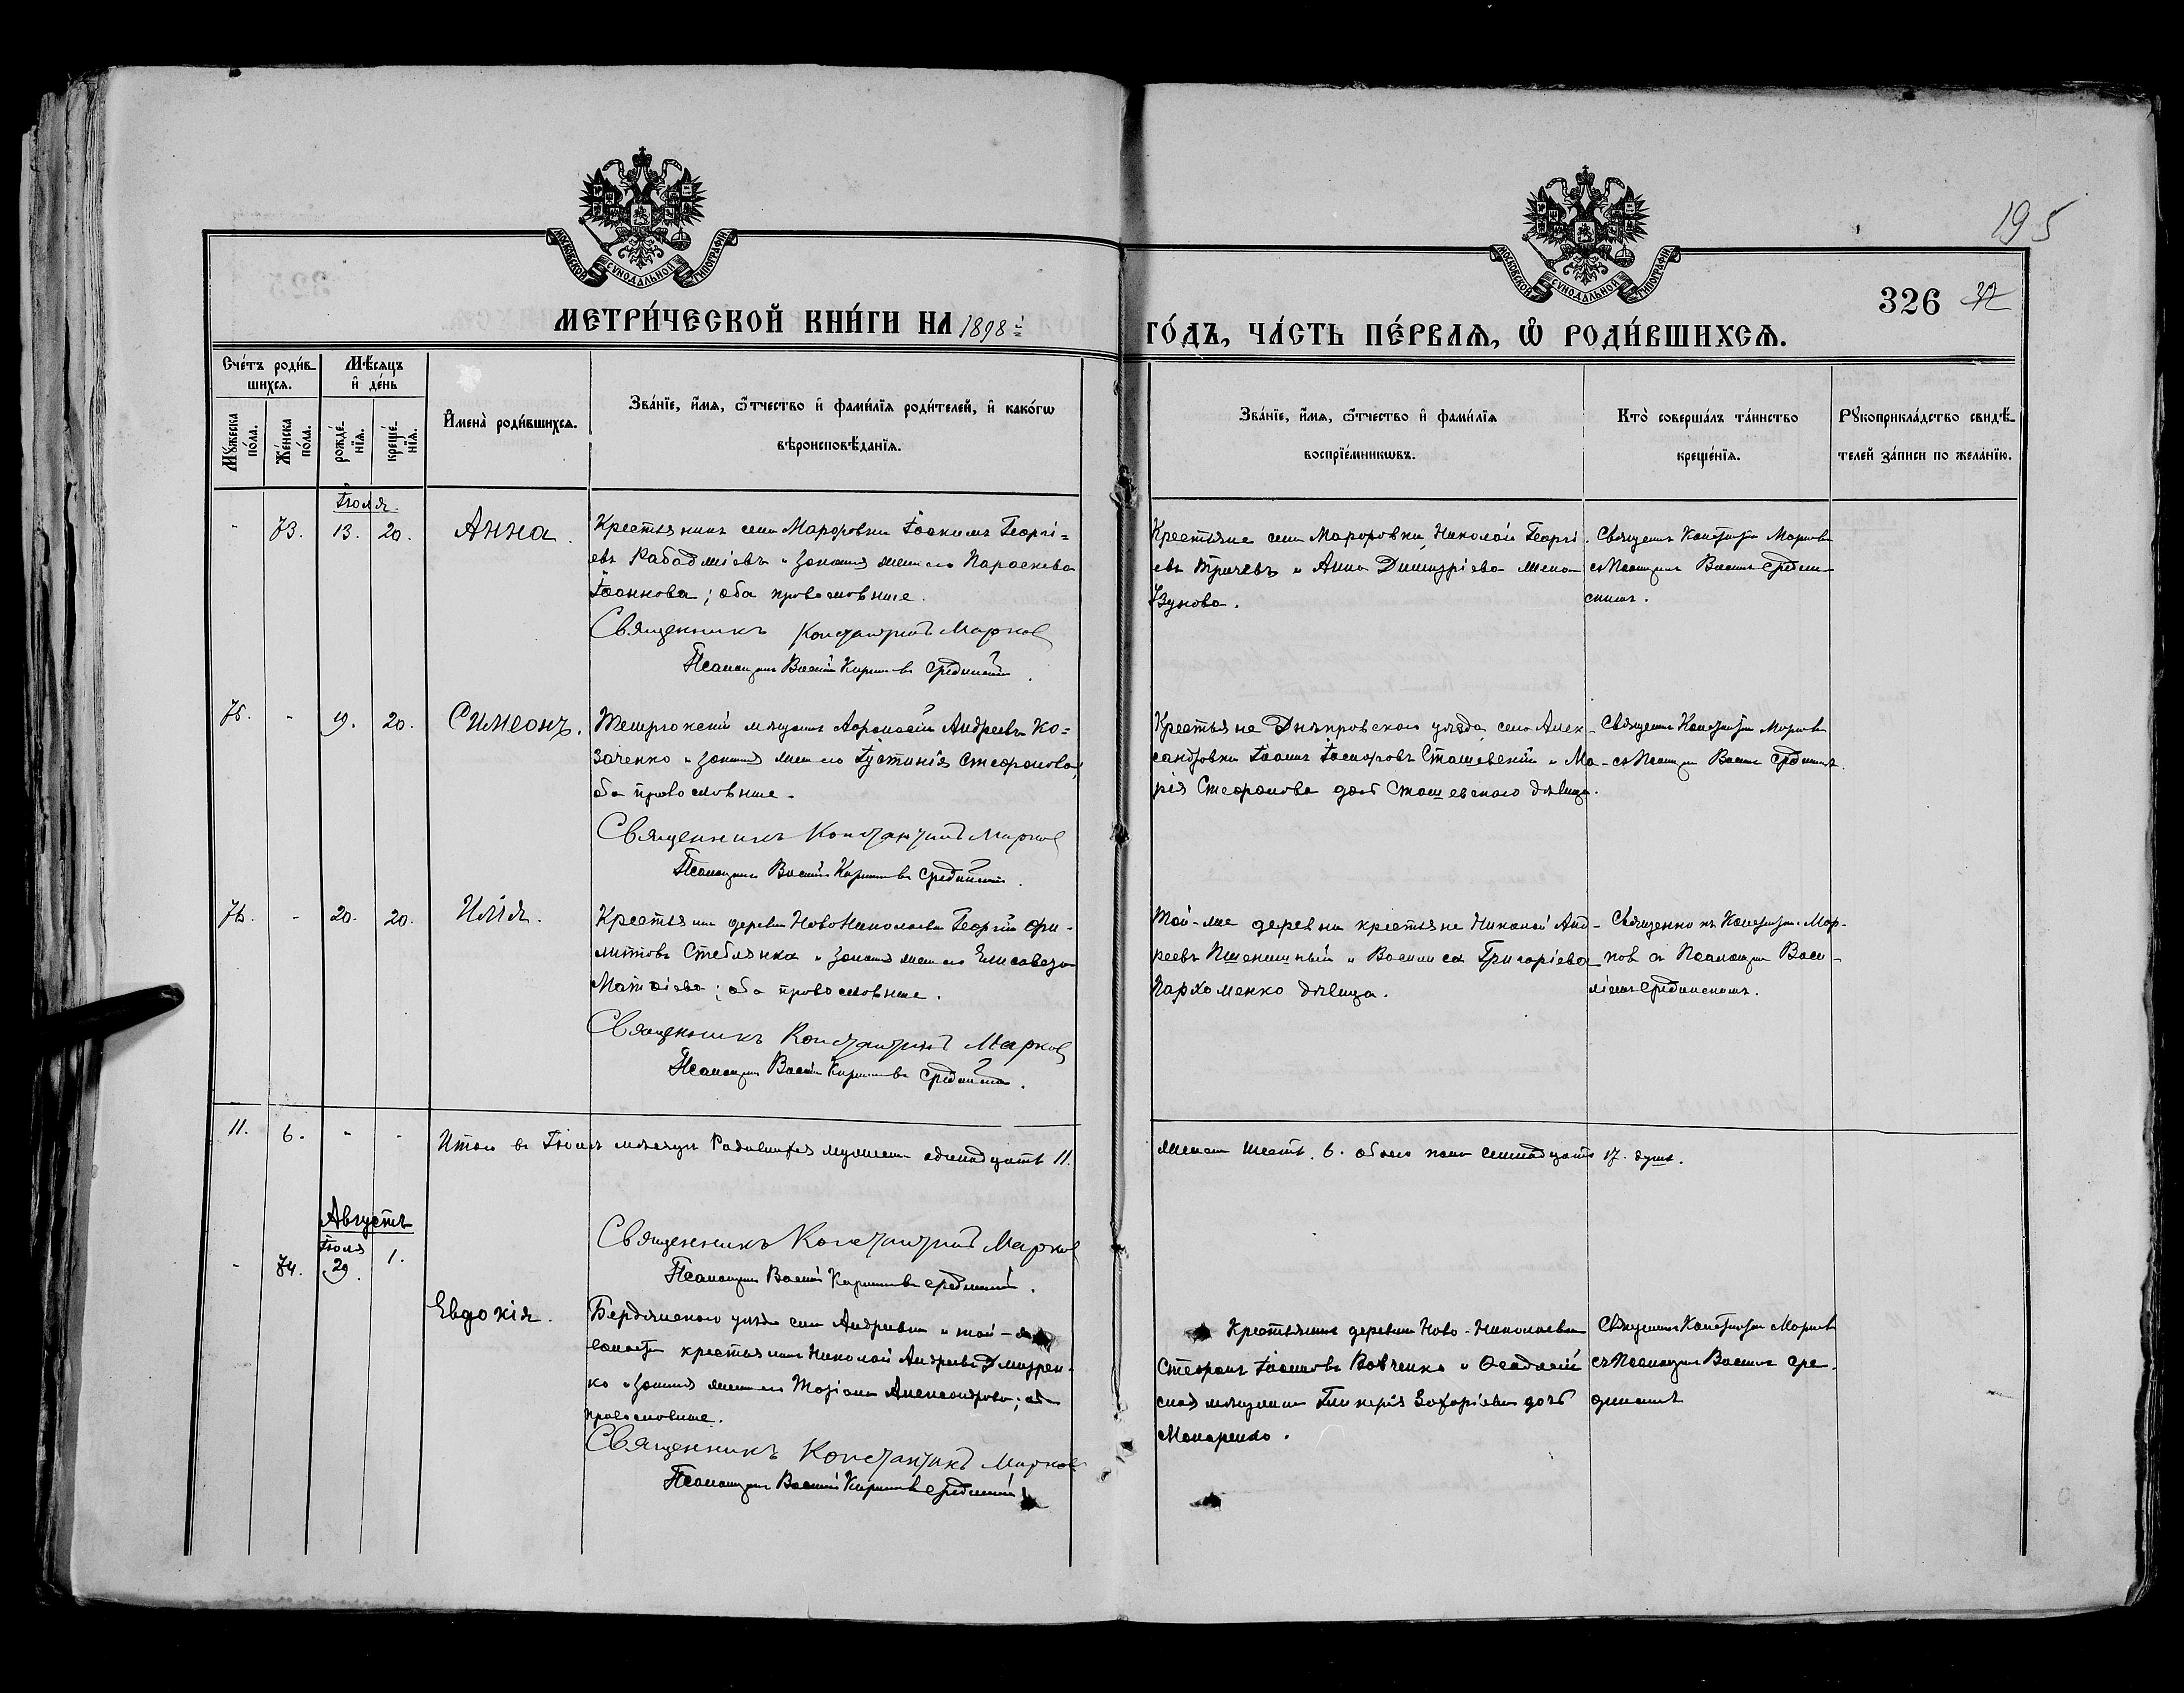 195
326 37
МОСКОВСКОЙ СѴНОДАЛЬНОЙ ТИПОГРАФІИ
МОСКОВСКОЙ СѴНОДАЛЬНОЙ ТИПОГРАФІИ
МЕТРИ́ЧЕСКОЙ КНИ́ГИ НА 1898й
ГО́ДЪ, ЧА́СТЬ ПЕ́РВАѦ, Ѿ РОДИ́ВШИХСѦ.
Сче́тъ роди́вшихсѧ.
Мѣ́сѧцъ и҆ де́нь
Мꙋ́жеска по́ла.
Же́нска по́ла.
рожде́нїѧ.
креще́нїѧ.
И҆мена̀ роди́вшихсѧ.
Зва́нїе, и҆́мѧ, ѻ҆́тчество и҆ фами́лїѧ роди́телей, и҆ како́гѡ
вѣроисповѣ́данїѧ.
Зва́нїе, и҆́мѧ, ѻ҆́тчество и҆ фами́лїѧ
воспрїе́мникѡвъ.
Кто̀ соверша́лъ та́инство
креще́нїѧ.
Рꙋкоприкла́дство свидѣ́-
телей за́писи по жела́нїю.
Іюля
- 73. 13. 20. Анна.
Крестьянинъ села Марфовки Іоакимъ Георгі=
евъ Рабаджіевъ и законная жена его Параскева
Іоаннова; оба православные.
Священникъ Константинъ Марков
Псаломщикъ Василій Кирилловъ Срединскій.
Крестьяне села Марфовки, Николай Георгі-
евъ Тричевъ и Анна Димитріева жена
Узунова.
Священникъ Константинъ Марковъ
съ Псаломщикомъ Василіемъ Средин-
скимъ.
75. - 19. 20. Симеонъ.
мѣщанинъ Афанасій Андреевъ Ко=
заченко и законная жена его Іустинія Стефанова;
оба православные.
Священникъ Константинъ Марков
Псаломщикъ Василій Кирилловъ Срединскій.
Крестьяне Днѣпровскаго уѣзда, села Алек-
сандровки Іоаннъ Іосифовъ Сташевскій и Ма-
рія Стефанова дочь Сташевского дѣвица.
Священникъ Константинъ Марковъ
съ Псаломщикомъ Василіемъ Срединскимъ.
76. - 20. 20. Илія.
Крестьянинъ деревни НовоНиколаевки Георгій Фи-
липповъ Стеблянка и законная жена его Елисавета
Матѳіева; оба православные.
Священникъ Константинъ Марков
Псаломщикъ Василій Кирилловъ Срединскій.
Той-же деревни крестьяне Николай Анд-
реевъ Пшеничный и Василиса Григоріева
Пархоменко дѣвица.
Священникъ Константинъ Мар-
ковъ съ Псаломщикомъ Васи-
ліемъ Срединскимъ.
11. 6. - -
Итого въ Іюлѣ мѣсяцѣ Родившихся мужеска одинадцать 11.
женска шесть. 6. обоего пола семнадцать 17. душъ.
Августъ
Іюля
- 74. 29. 1.
Священникъ Константинъ Марков
Псаломщикъ Василій Кирилловъ Срединскій.
Евдокія.
Бердянскаго уѣзда села Андреевки и той-же
волости крестьянинъ Николай Андреевъ Дмитрен-
ко и законная жена его Татіана Александрова; оба
православные.
Священникъ Константинъ Марков
Псаломщикъ Василій Кирилловъ Срединскій
Крестьянинъ деревни Ново-Николаевки
Стефанъ Іоанновъ Вовченко и
мѣщанка Гликерія Захаріева дочь
Макаренко.
Священникъ Константинъ Марковъ
съ Псаломщикомъ Василіемъ Сре-
динскимъ